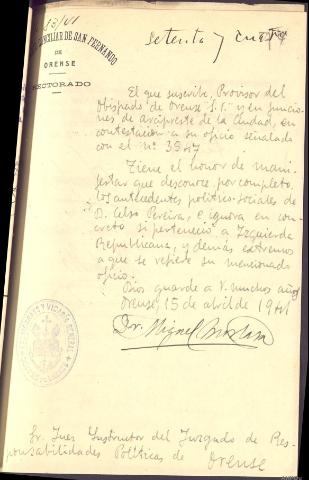 CILIAR DE SAN FERNANDO
DE
ORENSE
RECTORADO
Setenta y cuatro
El que suscribe, Provisor del
Obispado de Orense S.P. y en funcio-
nes de arcipreste de la Ciudad, en
contestación a su oficio señalado
con el nº 3547
Tiene el honor de mani-
festar que desconoce por completo
los antecedentes político-sociales de
D. Celso Pereira, e ignora en con-
creto si perteneció a Izquierda
Republicana, y demás extremos
a que se refiere su mencionado
oficio.
Dios guarde a V. muchos años
Orense, 15 de abril de 1941
Dr. Miguel
Sr. Juez Instructor del Juzgado de Res-
ponsabilidades Políticas de Orense